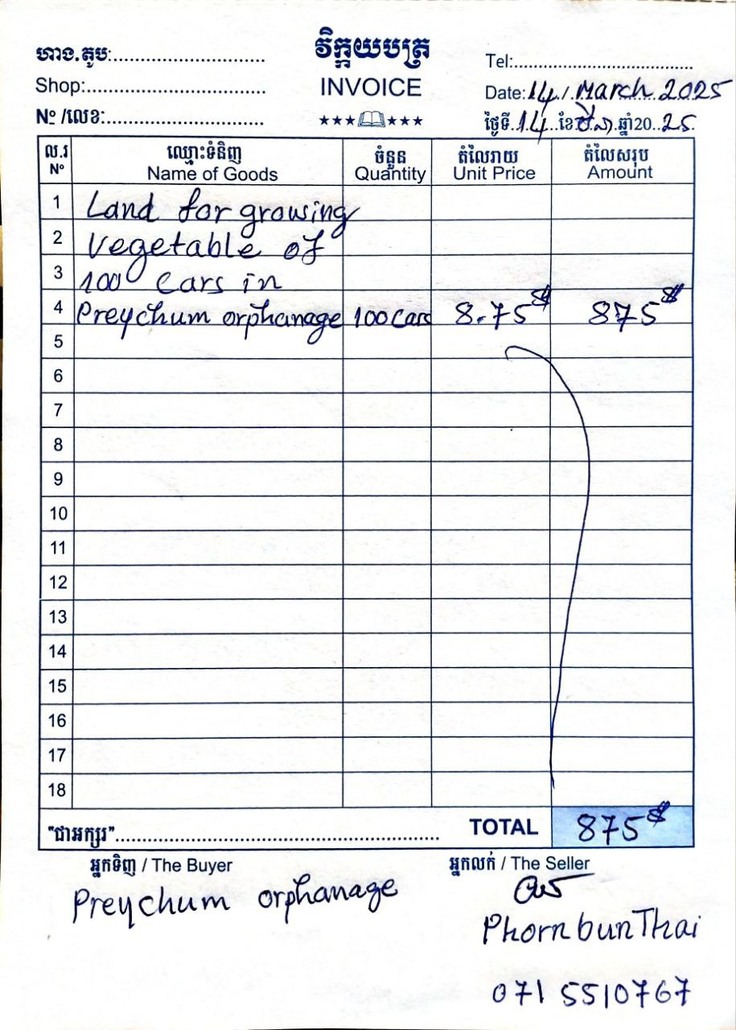 វិក្កយបត្រ
ហាង.តូប:
Tel:
Shop:
INVOICE
Date: 14 / March 2025
Nº /លេខ:
ថ្ងៃទី 14 ខែ មីនា ឆ្នាំ20 25
ល.រ ឈ្មោះទំនិញ ចំនួន តំលៃរាយ តំលៃសរុប
Nº Name of Goods Quantity Unit Price Amount
1 Land for growing
2 Vegetable of
3 100 cars in
4 Preychum orphanage 100 cars 8.75$ 875$
5
6
7
8
9
10
11
12
13
14
15
16
17
18
"ជាអក្សរ" TOTAL 875$
អ្នកទិញ / The Buyer អ្នកលក់ / The Seller
Preychum orphanage
PhornbunThai
071 5510767